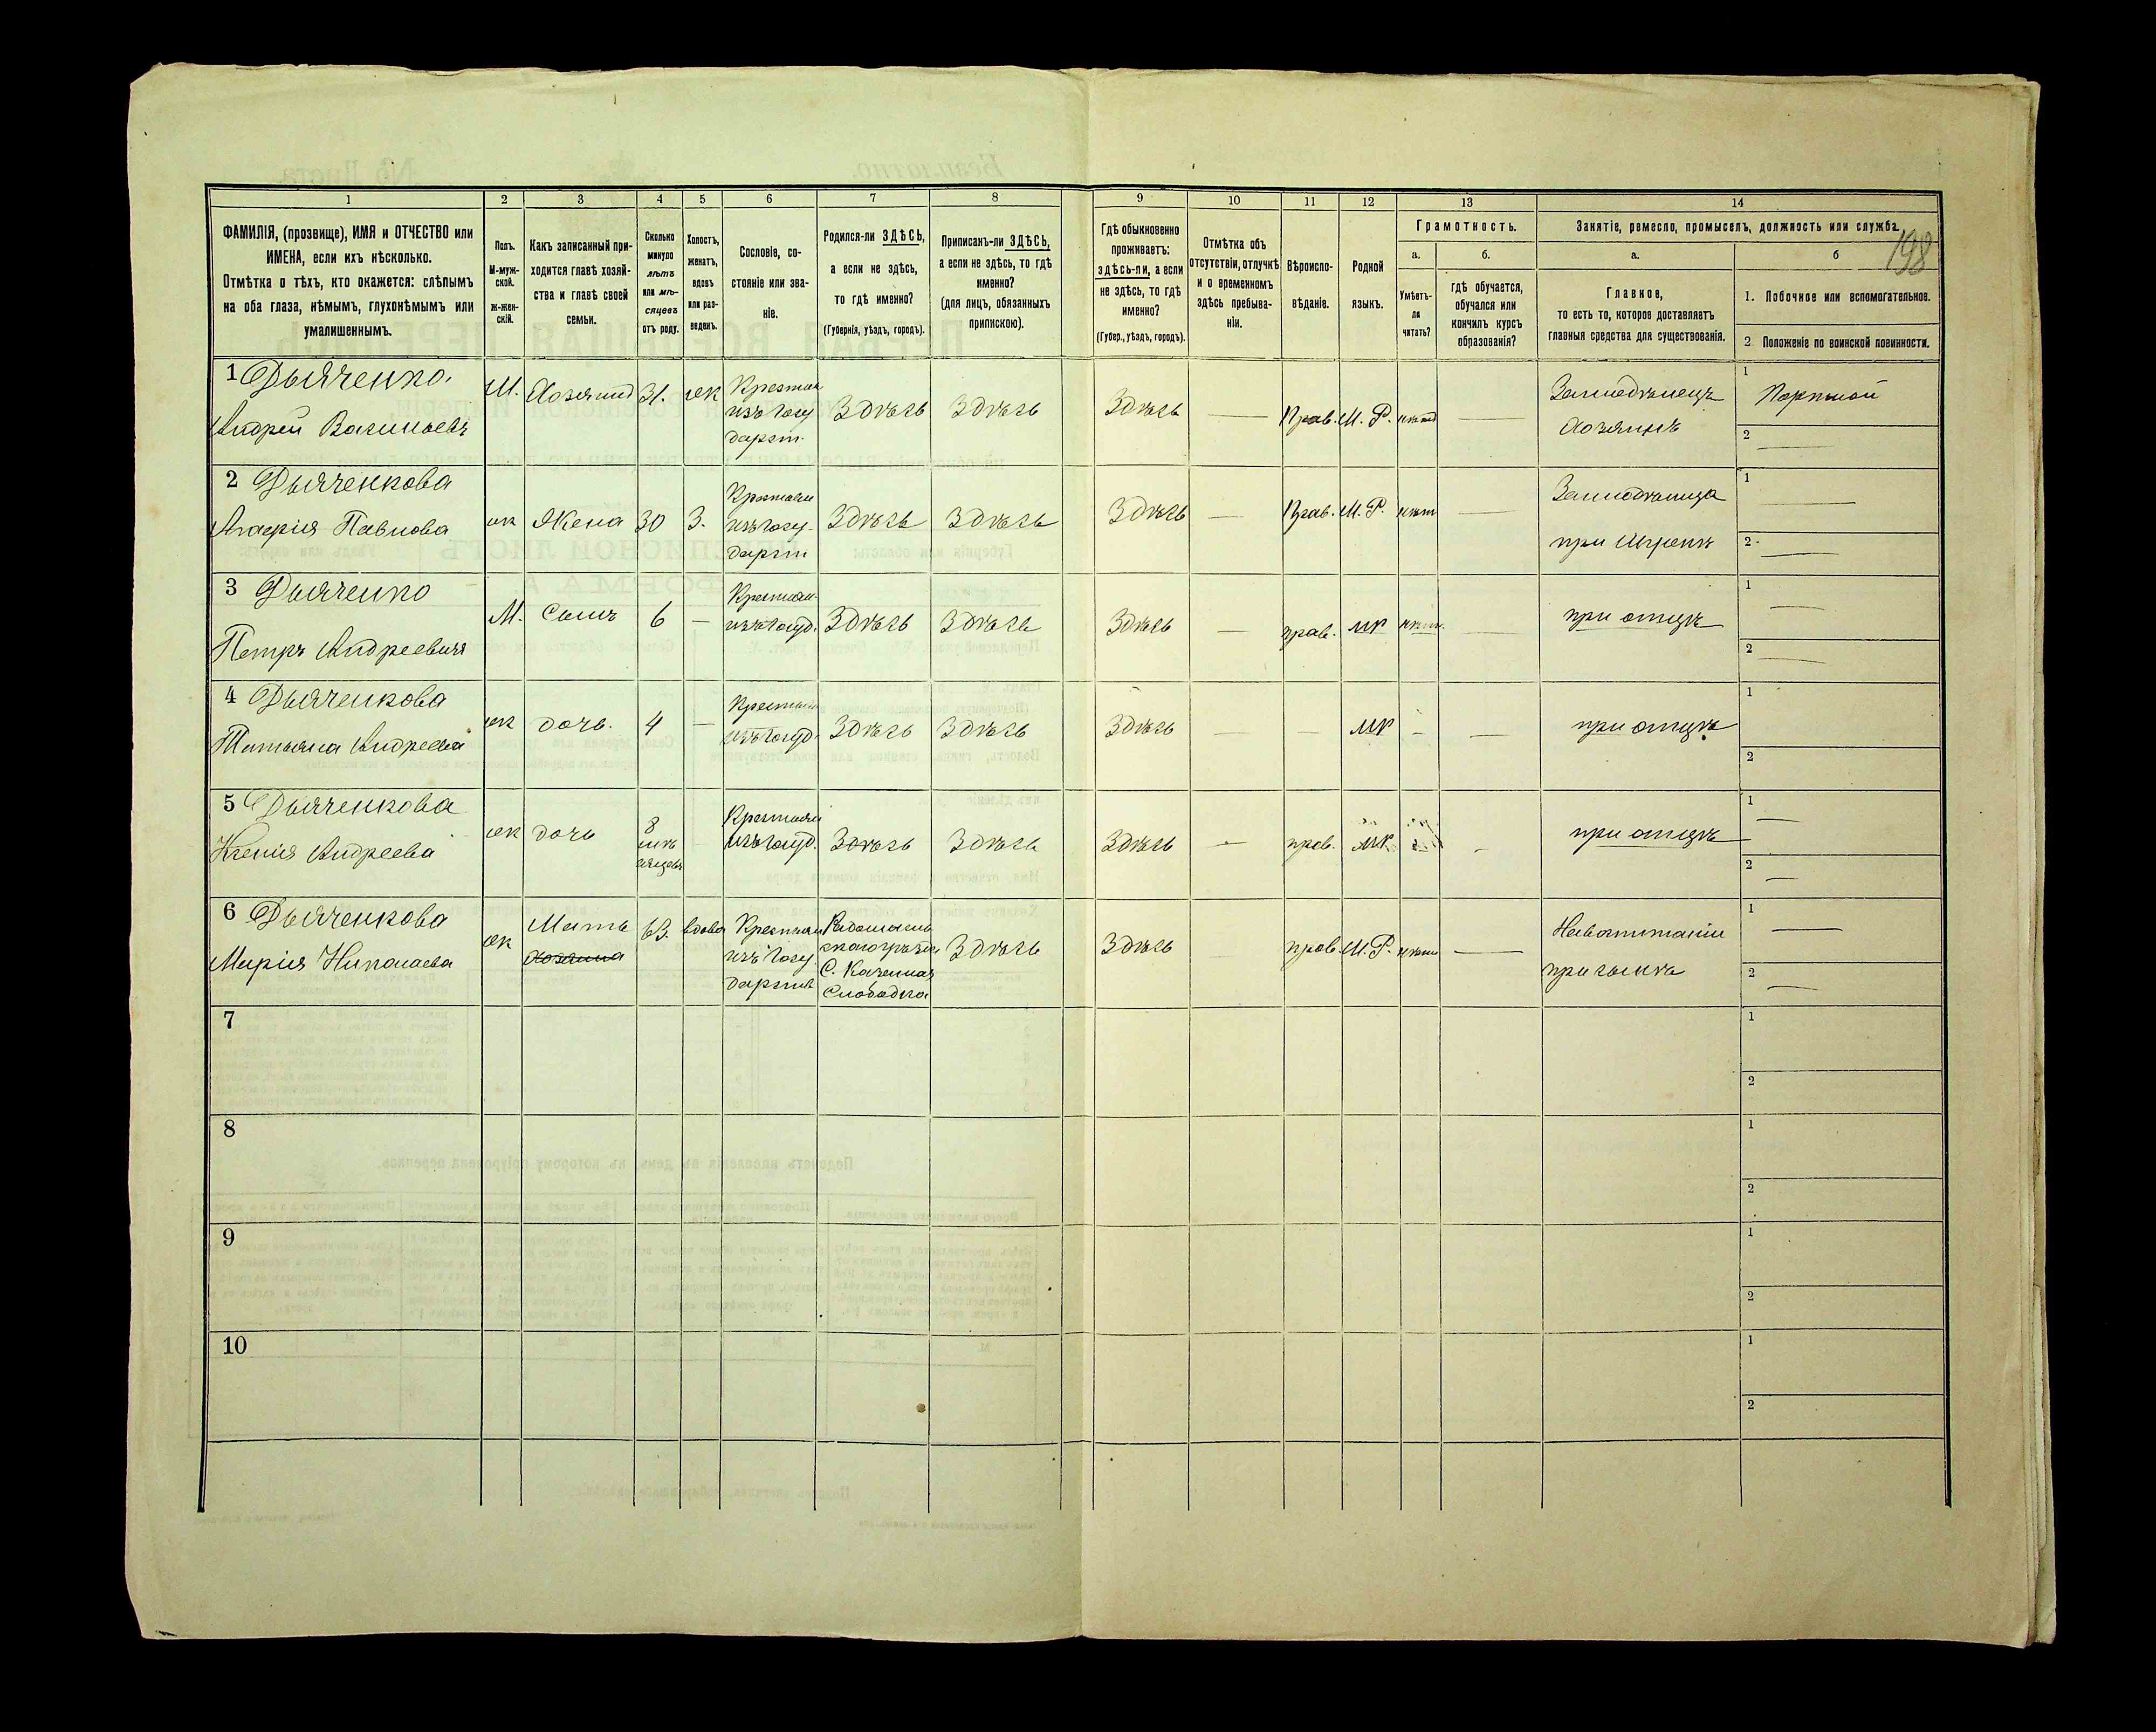 198
1 2 3 4 5 6 7 8 9 10 11 12 13 14
ФАМИЛІЯ, (прозвище), ИМЯ и ОТЧЕСТВО или
ИМЕНА, если ихъ нѣсколько.
Отмѣтка о тѣхъ, кто окажется: слѣпымъ
на оба глаза, нѣмымъ, глухонѣмымъ или
умалишеннымъ.
Полъ.
М-муж-
ской.
Ж-жен-
скій.
Какъ записанный при-
ходится главѣ хозяй-
ства и главѣ своей
семьи.
Сколько
минуло
лѣтъ
или мѣ-
сяцевъ
отъ роду.
Холостъ,
женатъ,
вдовъ
или раз-
веденъ.
Сословіе, со-
стояніе или зва-
ніе.
Родился-ли ЗДѢСЬ,
а если не здѣсь,
то гдѣ именно?
(Губернія, уѣздъ, городъ).
Приписанъ-ли ЗДѢСЬ,
а если не здѣсь, то гдѣ
именно?
(для лицъ, обязанныхъ
припискою).
Гдѣ обыкновенно
проживаетъ:
здѣсь-ли, а если
не здѣсь, то гдѣ
именно?
(Губер., уѣздъ, городъ).
Отмѣтка объ
отсутствіи, отлучкѣ
и о временномъ
здѣсь пребыва-
ніи.
Вѣроиспо-
вѣданіе.
Родной
языкъ.
Грамотность.
а.
Умѣетъ-
ли
читать?
б.
гдѣ обучается,
обучался или
кончилъ курсъ
образованія?
Занятіе, ремесло, промыселъ, должность или служба.
а.
Главное,
то есть то, которое доставляетъ
главныя средства для существованія.
б
1. Побочное или вспомогательное.
2 Положеніе по воинской повинности.
1 Дьяченко.
Андрей Васильевъ
М. Хозяинъ 31. жк
Крестьян
изъ госу
дарст.
Здѣсь Здѣсь Здѣсь — Прав. М. Р. нѣт —
Земледѣлецъ
Хозяинъ
1 Портной
2 —
2 Дьяченкова
Агафія Павлова
жк Жена 30 З.
Крестьян
изъ госу-
дарст
Здѣсь Здѣсь Здѣсь — Прав. М. Р. нѣт —
Земледѣлица
при
1 —
2 —
3 Дьяченко
Петръ Андреевичъ
М. Сынъ 6 —
Крестьян-
изъ госуд.
Здѣсь Здѣсь Здѣсь — прав. МР нѣт. —
при отцѣ
1 —
2 —
4 Дьяченкова
Татьяна Андреева
жк дочь. 4 —
Крестьян
изъ госуд.
Здѣсь Здѣсь Здѣсь — — МР - —
при отцѣ
1
2
5 Дьяченкова
Ксенія Андреева
жк дочь
8
мѣ
сяцевъ
Крестьян
изъ госуд.
Здѣсь Здѣсь Здѣсь — прав. МР —
при отцѣ
1 —
2 —
6 Дьяченкова
Марія Николаева
жк
Мать
хозяина
63. вдова
Крестьян
изъ госу
дарств
С. Казенная
Слободка
Здѣсь Здѣсь прав. М. Р. нѣт —
На воспитаніи
при сынѣ
1 —
2 —
7
1
2
8
1
2
9
1
2
10
1
2